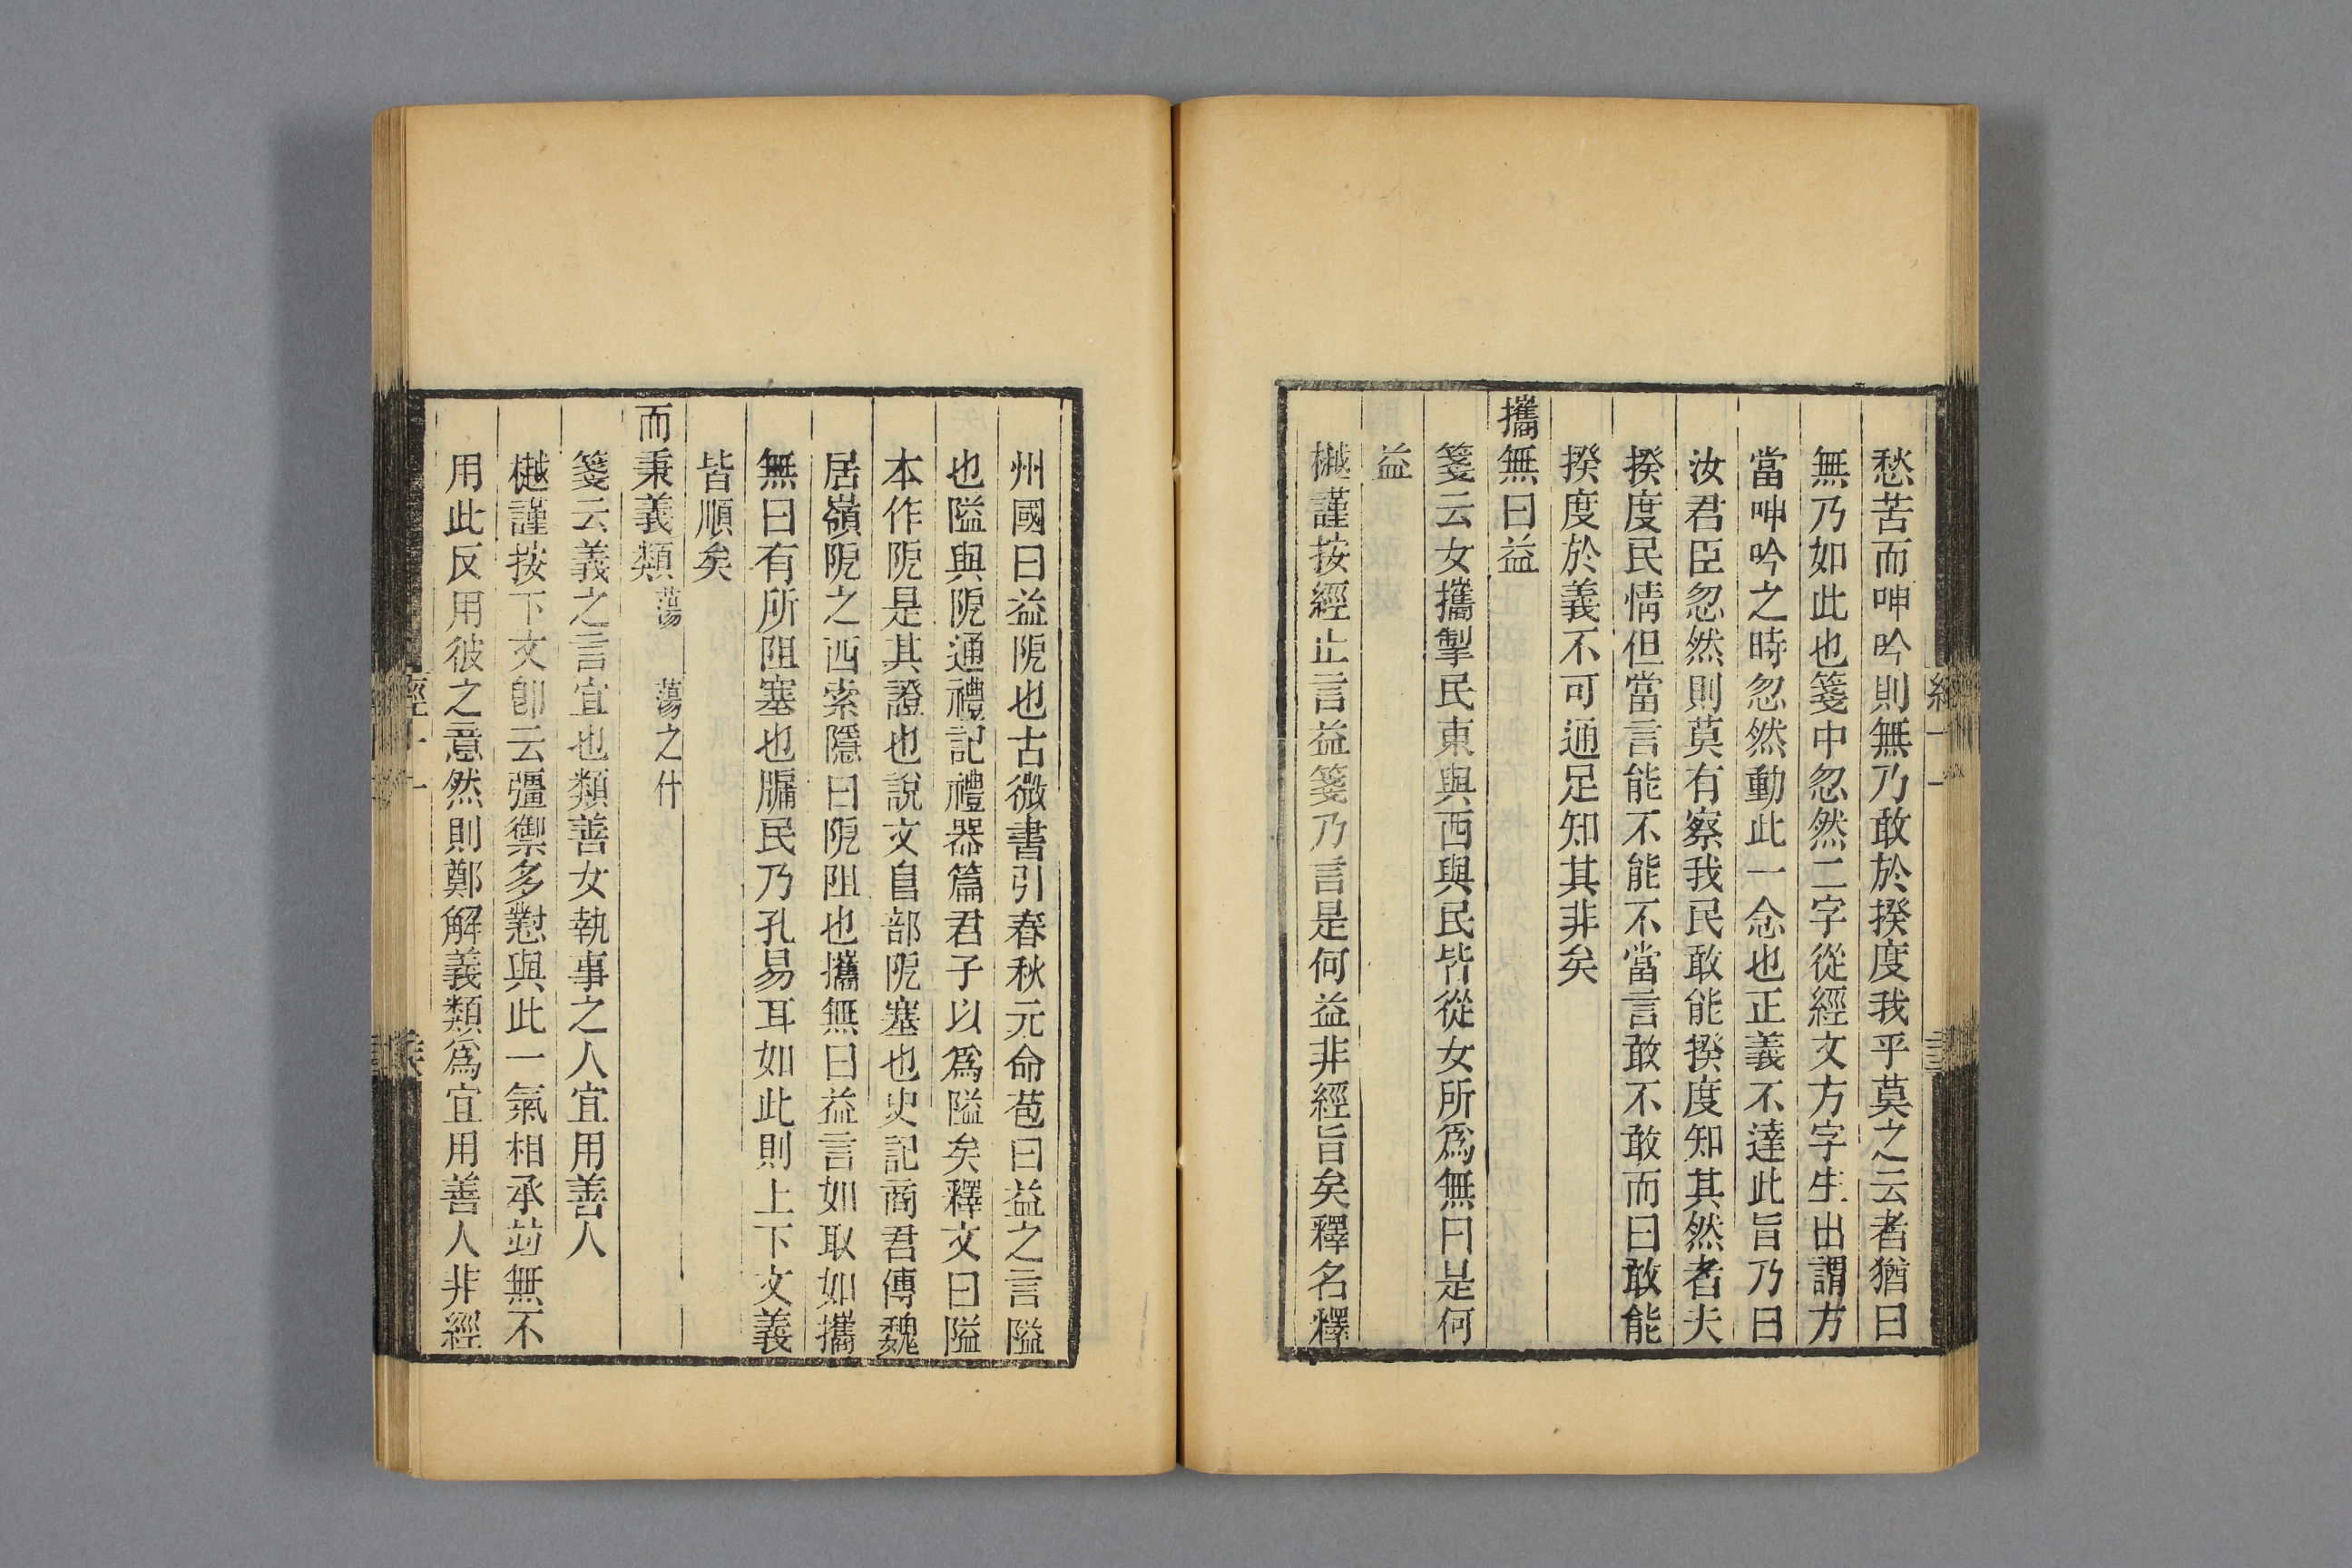 愁苦而呻吟則無乃敢於揆度我乎莫之云者猶曰
無乃如此也箋中忽然二字從經文方字生出謂方
當呻吟之時忽然動此一念也正義不達此旨乃曰
汝君臣忽然則莫有察我民敢能揆度知其然者夫
揆度民情但當言能不能不當言敢不敢而曰敢能
揆度於義不可通足知其非矣
攜無曰益
箋云女攜掣民東與西與民皆從女所爲無曰是何
益
樾謹按經止言益箋乃言是何益非經旨矣釋名釋
州國曰益阸也古微書引春秋元命苞曰益之言隘
也隘與阸通禮記禮器篇君子以爲隘矣釋文曰隘
本作阸是其證也說文𨸏部阸塞也史記商君傳魏
居嶺阸之西索隱曰阸阻也攜無曰益言如取如攜
無曰有所阻塞也牖民乃孔易耳如此則上下文義
皆順矣
而秉義類 蕩 蕩之什
箋云義之言宜也類善女執事之人宜用善人
樾謹按下文卽云彊禦多懟與此一氣相承竝無不
用此反用彼之意然則鄭解義類爲宜用善人非經